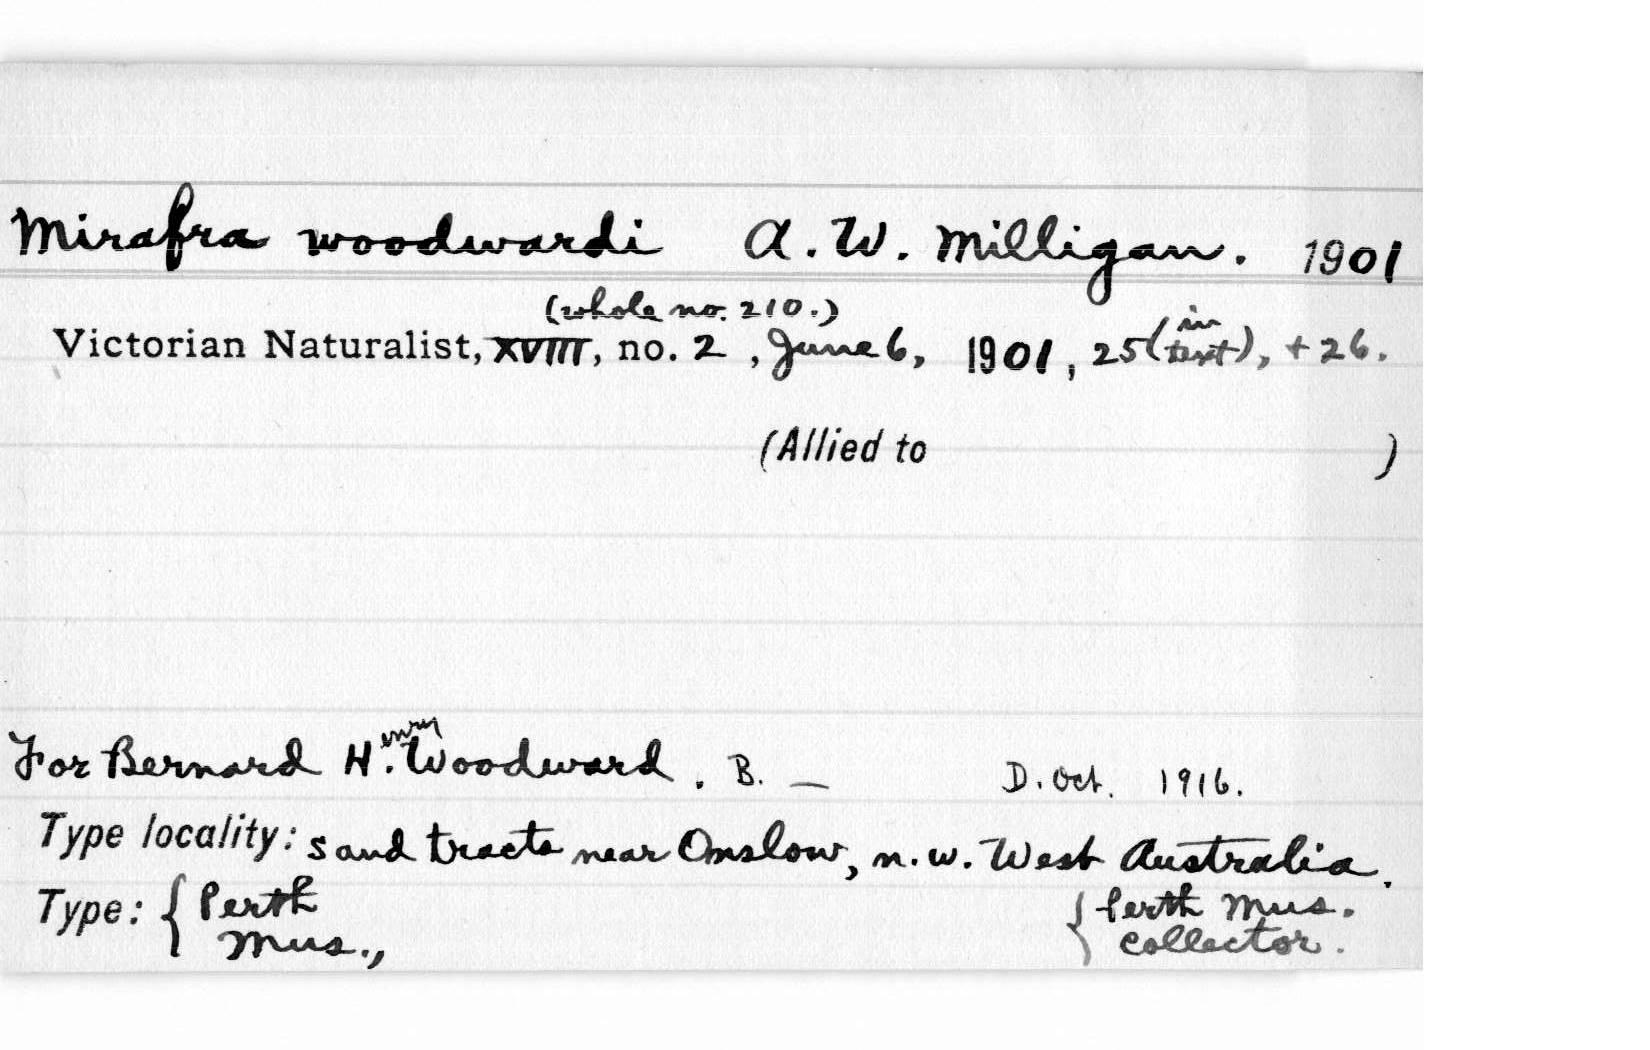 Mirafra woodwardi A. W. Milligan. 1901
(whole no. 210.)
Victorian Naturalist, XVIII, no. 2, June 6, 1901, 25 (in text), + 26.
(Allied to )
For Bernard Henry Woodward. B. — D. Oct. 1916.
Type locality: sand tracts near Onslow, n.w. West Australia.
Type: { Perth Mus., { Perth Mus. collector.